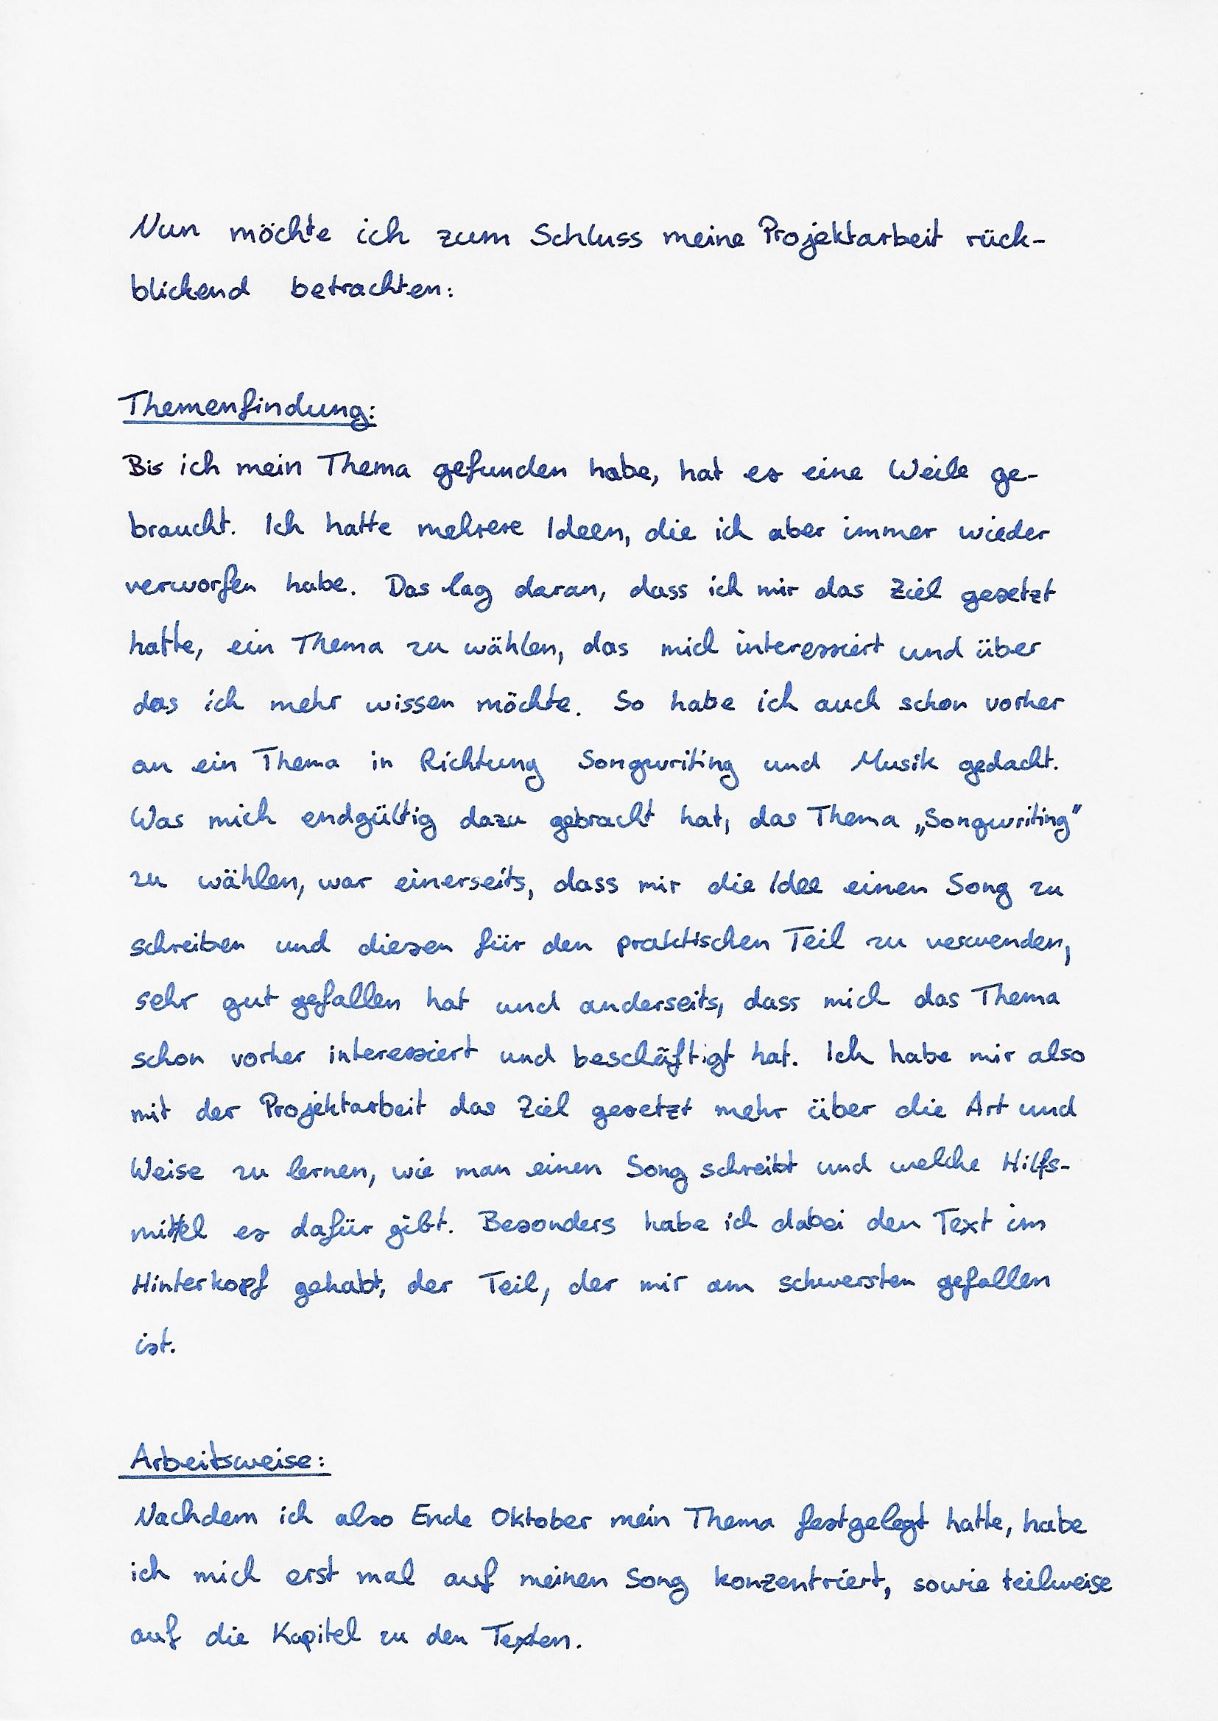 Nun möchte ich zum Schluss meine Projektarbeit rück-
blickend betrachten:
Themenfindung:
Bis ich mein Thema gefunden habe, hat es eine Weile ge-
braucht. Ich hatte mehrere Ideen, die ich aber immer wieder
verworfen habe. Das lag daran, dass ich mir das Ziel gesetzt
hatte, ein Thema zu wählen, das mich interessiert und über
das ich mehr wissen möchte. So habe ich auch schon vorher
an ein Thema in Richtung Songwriting und Musik gedacht.
Was mich endgültig dazu gebracht hat, das Thema „Songwriting"
zu wählen, war einerseits, dass mir die Idee einen Song zu
schreiben und diesen für den praktischen Teil zu verwenden,
sehr gut gefallen hat und anderseits, dass mich das Thema
schon vorher interessiert und beschäftigt hat. Ich habe mir also
mit der Projektarbeit das Ziel gesetzt mehr über die Art und
Weise zu lernen, wie man einen Song schreibt und welche Hilfs-
mittel es dafür gibt. Besonders habe ich dabei den Text im
Hinterkopf gehabt, der Teil, der mir am schwersten gefallen
ist.
Arbeitsweise:
Nachdem ich also Ende Oktober mein Thema festgelegt hatte, habe
ich mich erst mal auf meinen Song konzentriert, sowie teilweise
auf die Kapitel zu den Texten.